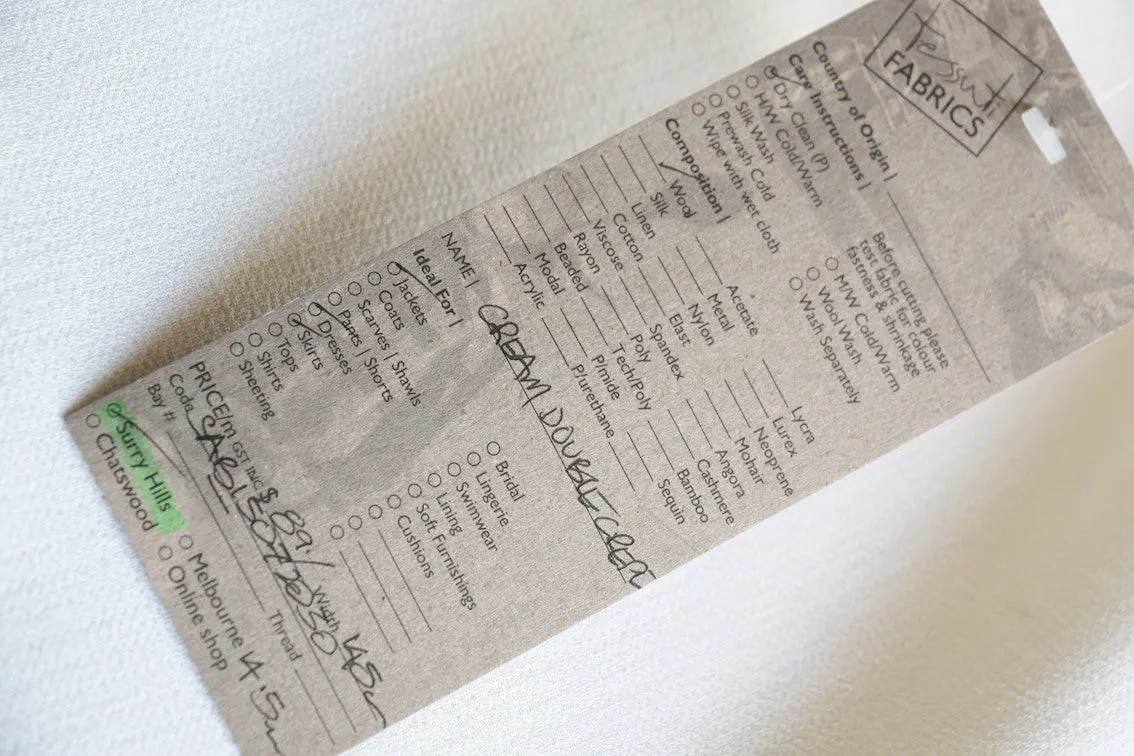 Tessuti
FABRICS
Country of Origin |
Care Instructions |
Dry Clean (P)
H/W Cold/Warm
Silk Wash
Prewash Cold
Wipe with wet cloth
Before cutting please
test fabric for colour
fastness & shrinkage
M/W Cold/Warm
Wool Wash
Wash Separately
Composition |
Wool
Silk
Linen
Cotton
Viscose
Rayon
Beaded
Modal
Acrylic
Acetate
Metal
Nylon
Elast
Spandex
Poly
Tech/Poly
P/mide
P/urethane
Lycra
Lurex
Neoprene
Mohair
Angora
Cashmere
Bamboo
Sequin
NAME | CREAM DOUBLE CREPE
Ideal For |
Jackets
Coats
Scarves | Shawls
Pants | Shorts
Dresses
Skirts
Tops
Shirts
Sheeting
Bridal
Lingerie
Swimwear
Lining
Soft Furnishings
Cushions
PRICE/m GST INC $ 89/ Width 145
Code
Bay # Thread
Surry Hills
Chatswood
Melbourne 14.5m
Online shop